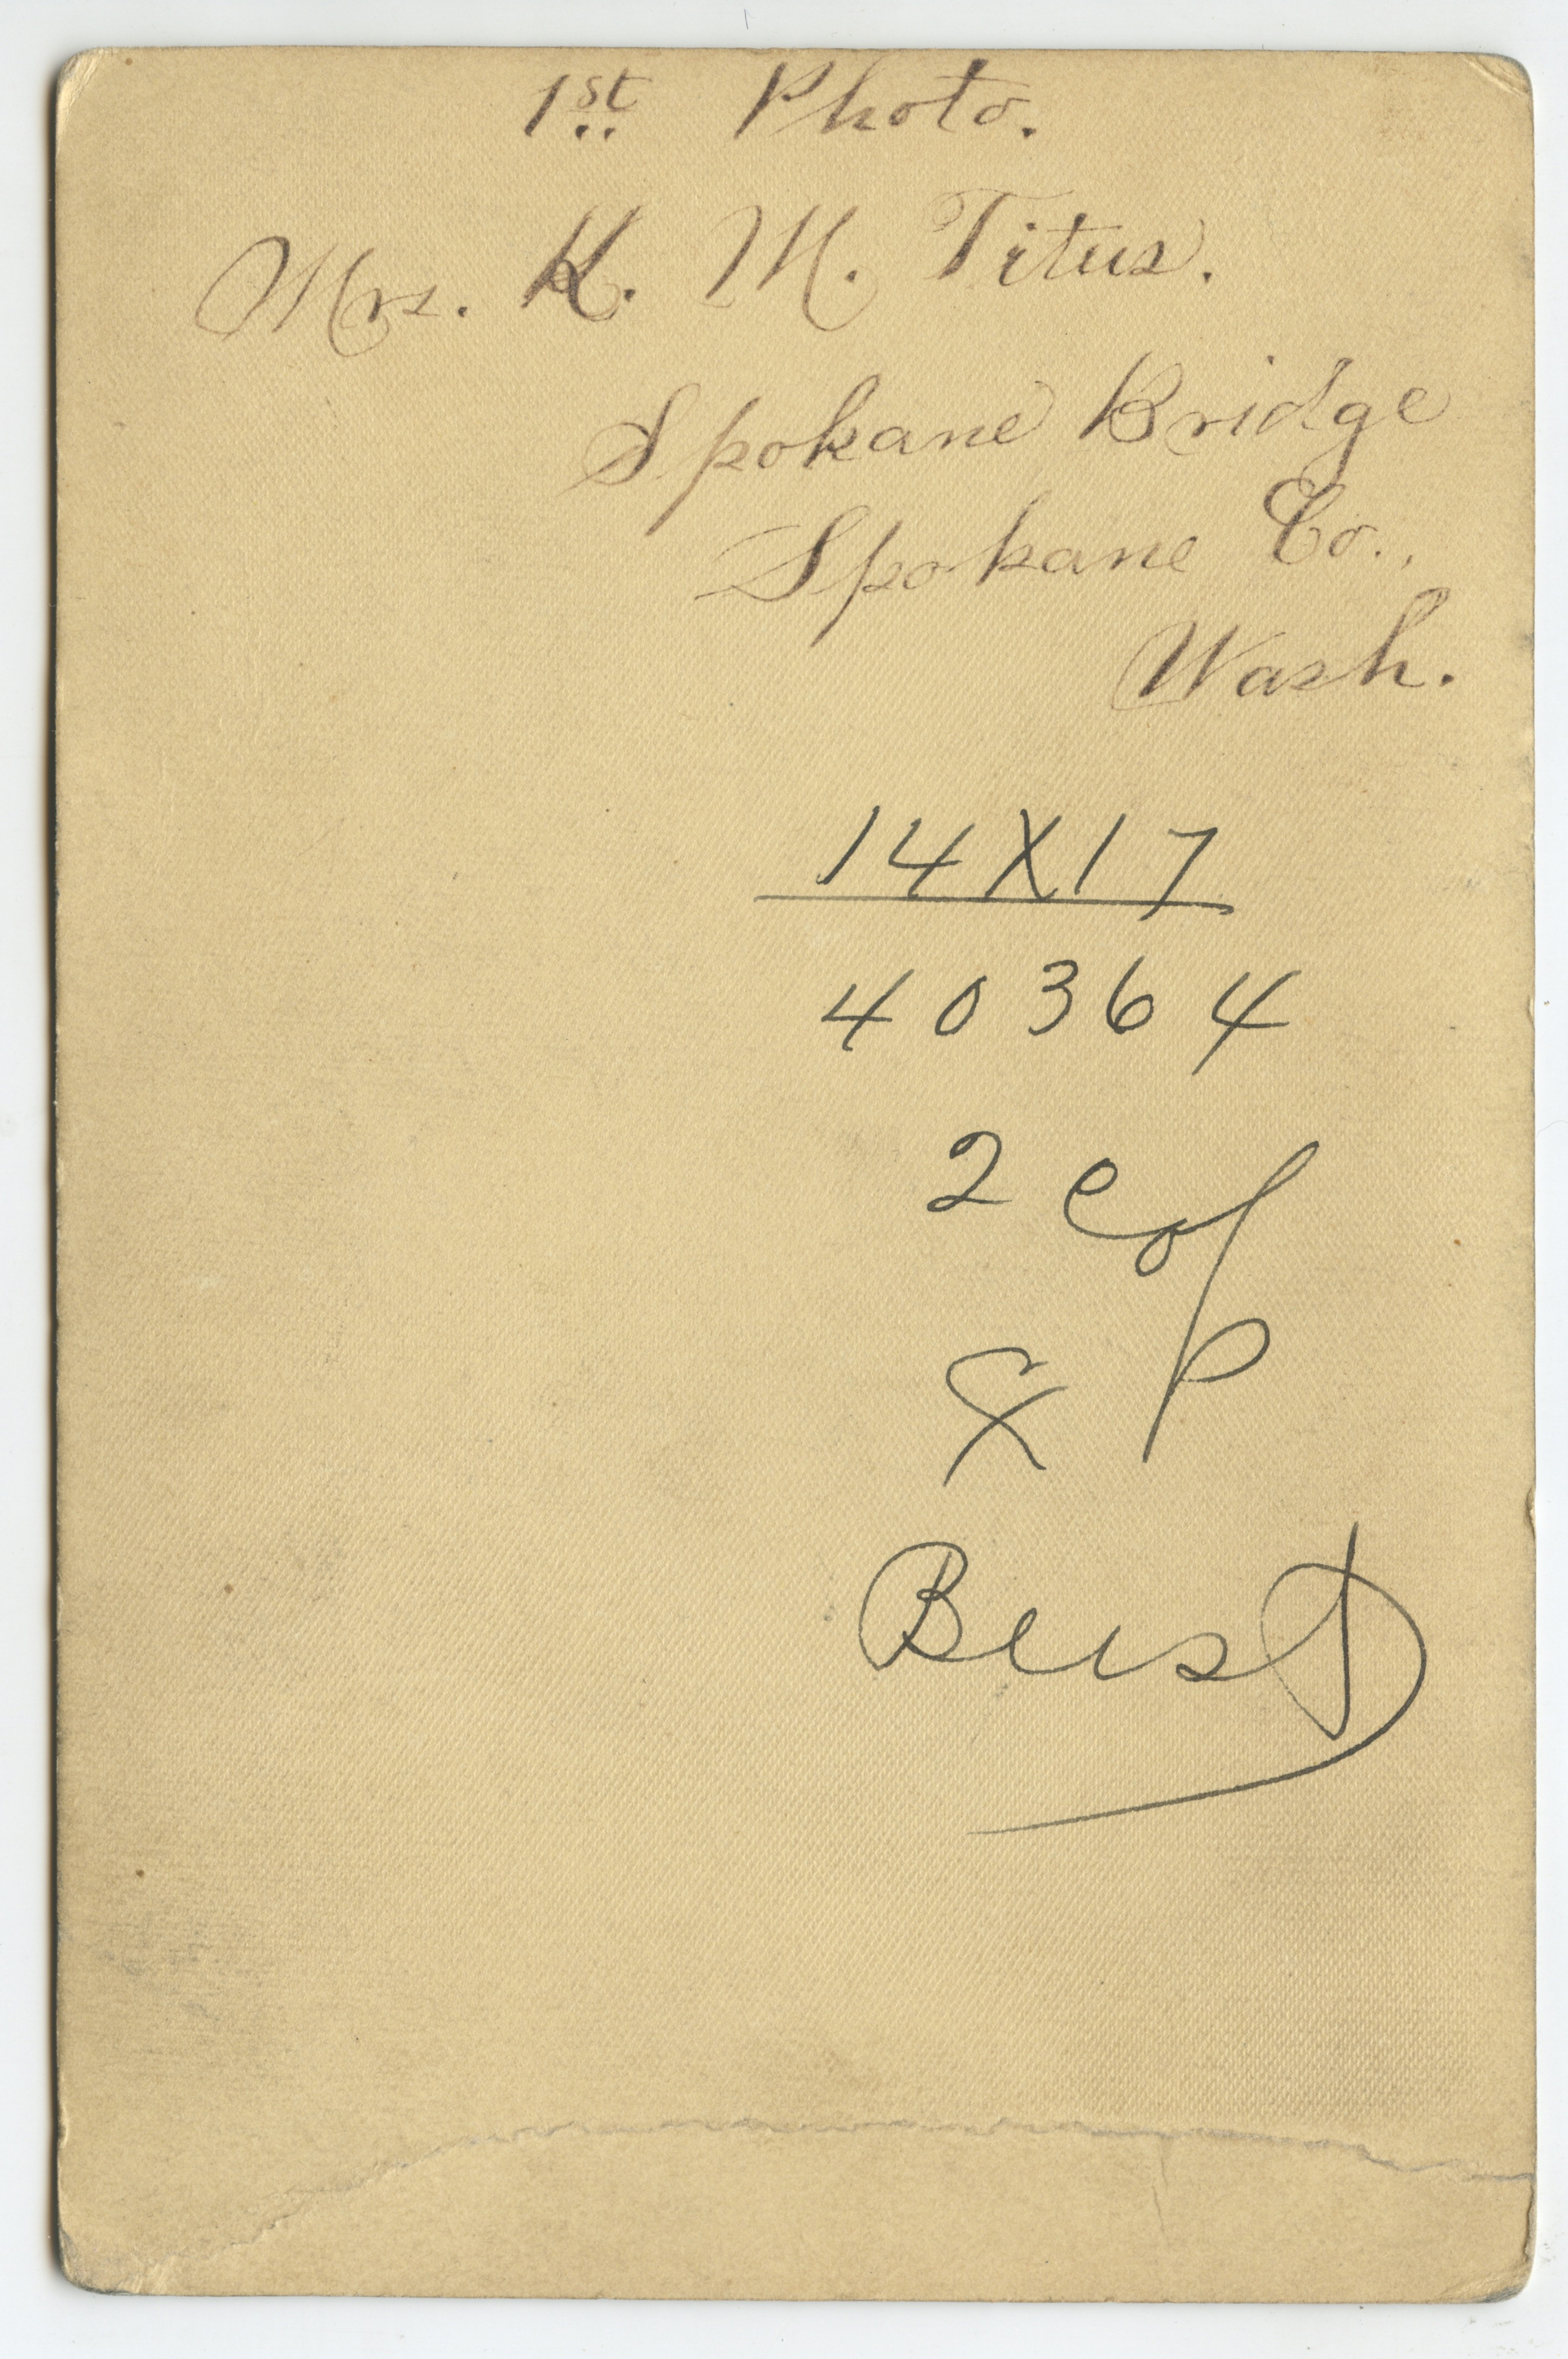 1st Photo.
Mrs. K. M. Titus.
Spokane Bridge
Spokane Co.,
Wash.
14X17
40364
2 Cop
&
Bust